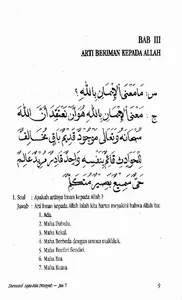 BAB III
ARTI BERIMAN KEPADA ALLAH
س : مَا مَعْنَى الْإِيْمَانِ بِاللّٰهِ؟
ج : مَعْنَى الْإِيْمَانِ بِاللّٰهِ هُوَ أَنْ نَعْتَقِدَ أَنَّ اللّٰهَ
سُبْحَانَهُ وَتَعَالَى مَوْجُوْدٌ قَدِيْمٌ بَاقٍ مُخَالِفٌ
لِلْحَوَادِثِ قَائِمٌ بِنَفْسِهِ وَاحِدٌ قَادِرٌ مُرِيْدٌ عَالِمٌ
حَيٌّ سَمِيْعٌ بَصِيْرٌ مُتَكَلِّمٌ
1. Soal : Apakah artinya Iman kepada Allah?
Jawab : Arti Iman kepada Allah ialah kita harus meyakini bahwa Allah itu:
1. Ada.
2. Maha Dahulu.
3. Maha Kekal.
4. Maha Berbeda dengan semua makhluk.
5. Maha Berdiri Sendiri
6. Maha Esa
7. Maha Kuasa
9